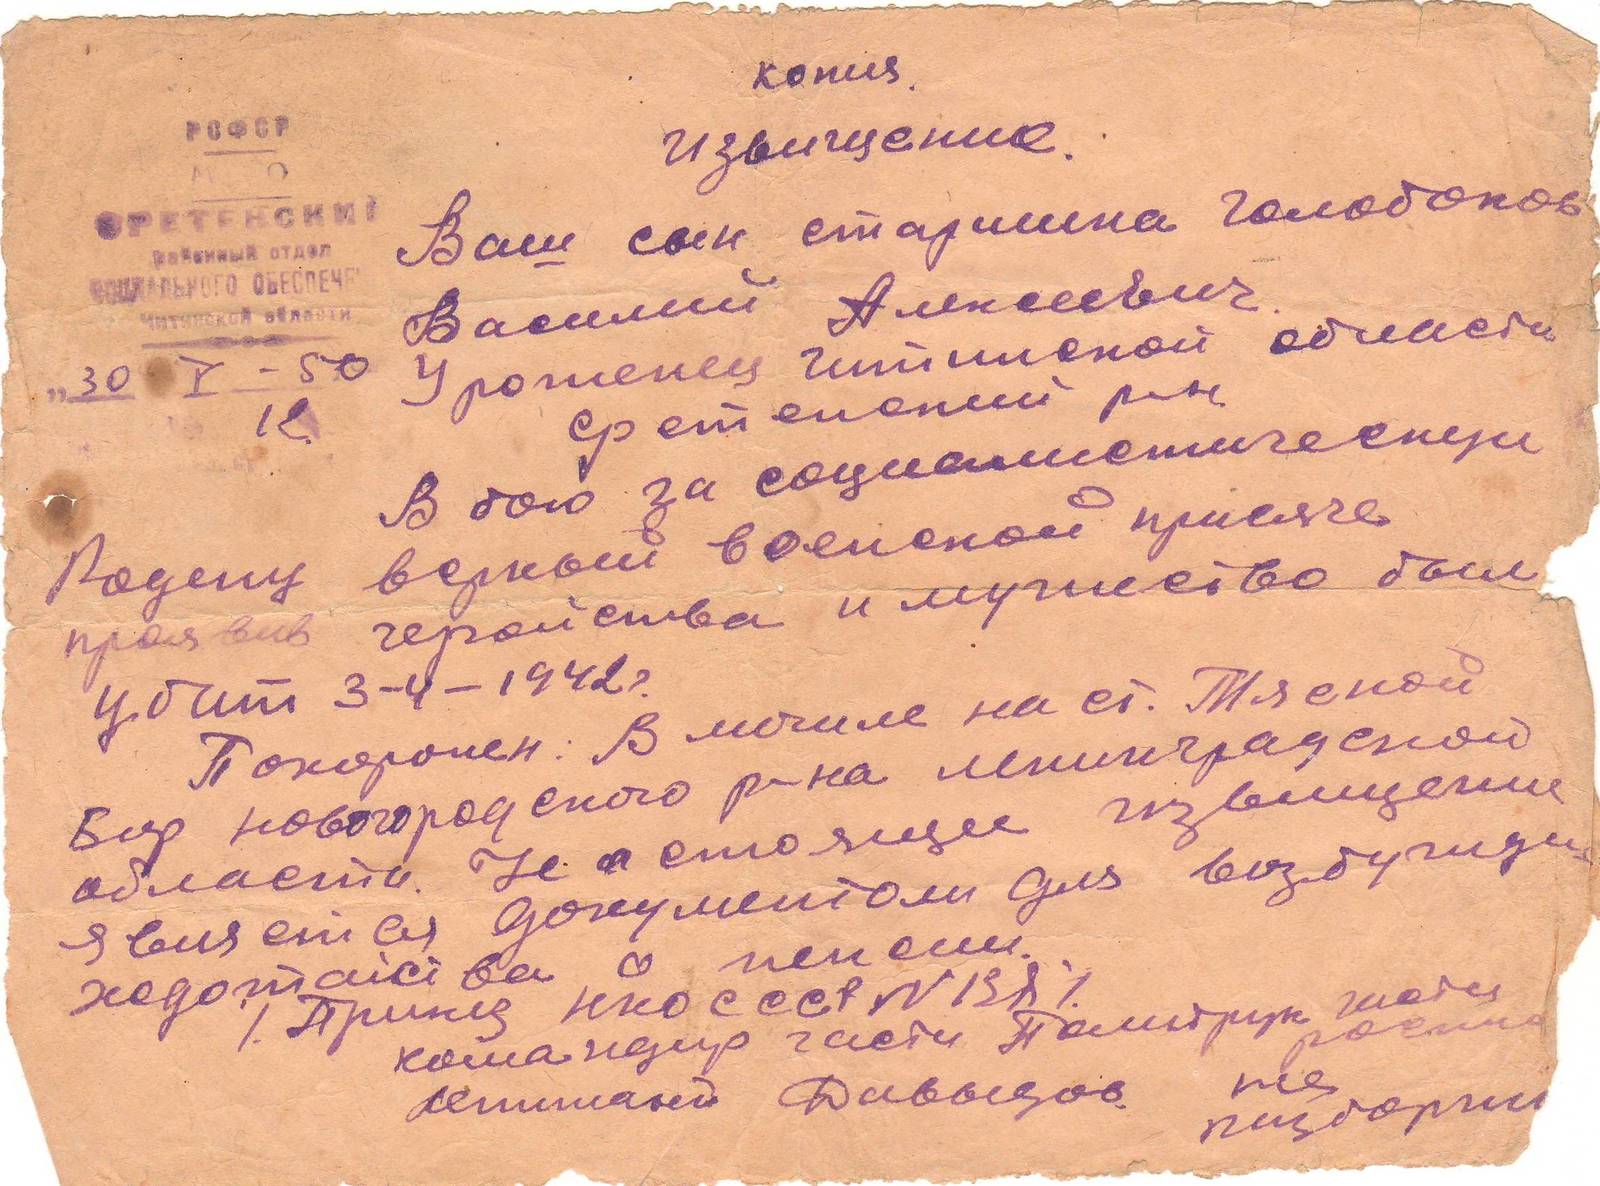 копия.
Извищение.
РСФСР
СРЕТЕНСКИЙ
Районный отдел
СОЦИАЛЬНОГО ОБЕСПЕЧЕ
Читинской области
„30 V - 50
12
Ваш сын старшина Голобоков
Василий Алексеевич.
Уроженец Читинской области
Сретенский р-н
В бою за социалистическую
Родену верный военской присяге
проявив геройства и мужество был
убит 3-4-1942г.
Похоронен: В могиле на ст. Тясной
Бир новогородского р-на ленинградской
области. Настоящие извищение
является документом для возбужиди
ходотайства о пенсии.
/. Приказ НКО СССР N 138/.
командир части Политрук части
лейтинант Давыдов роспись
не
розборчи